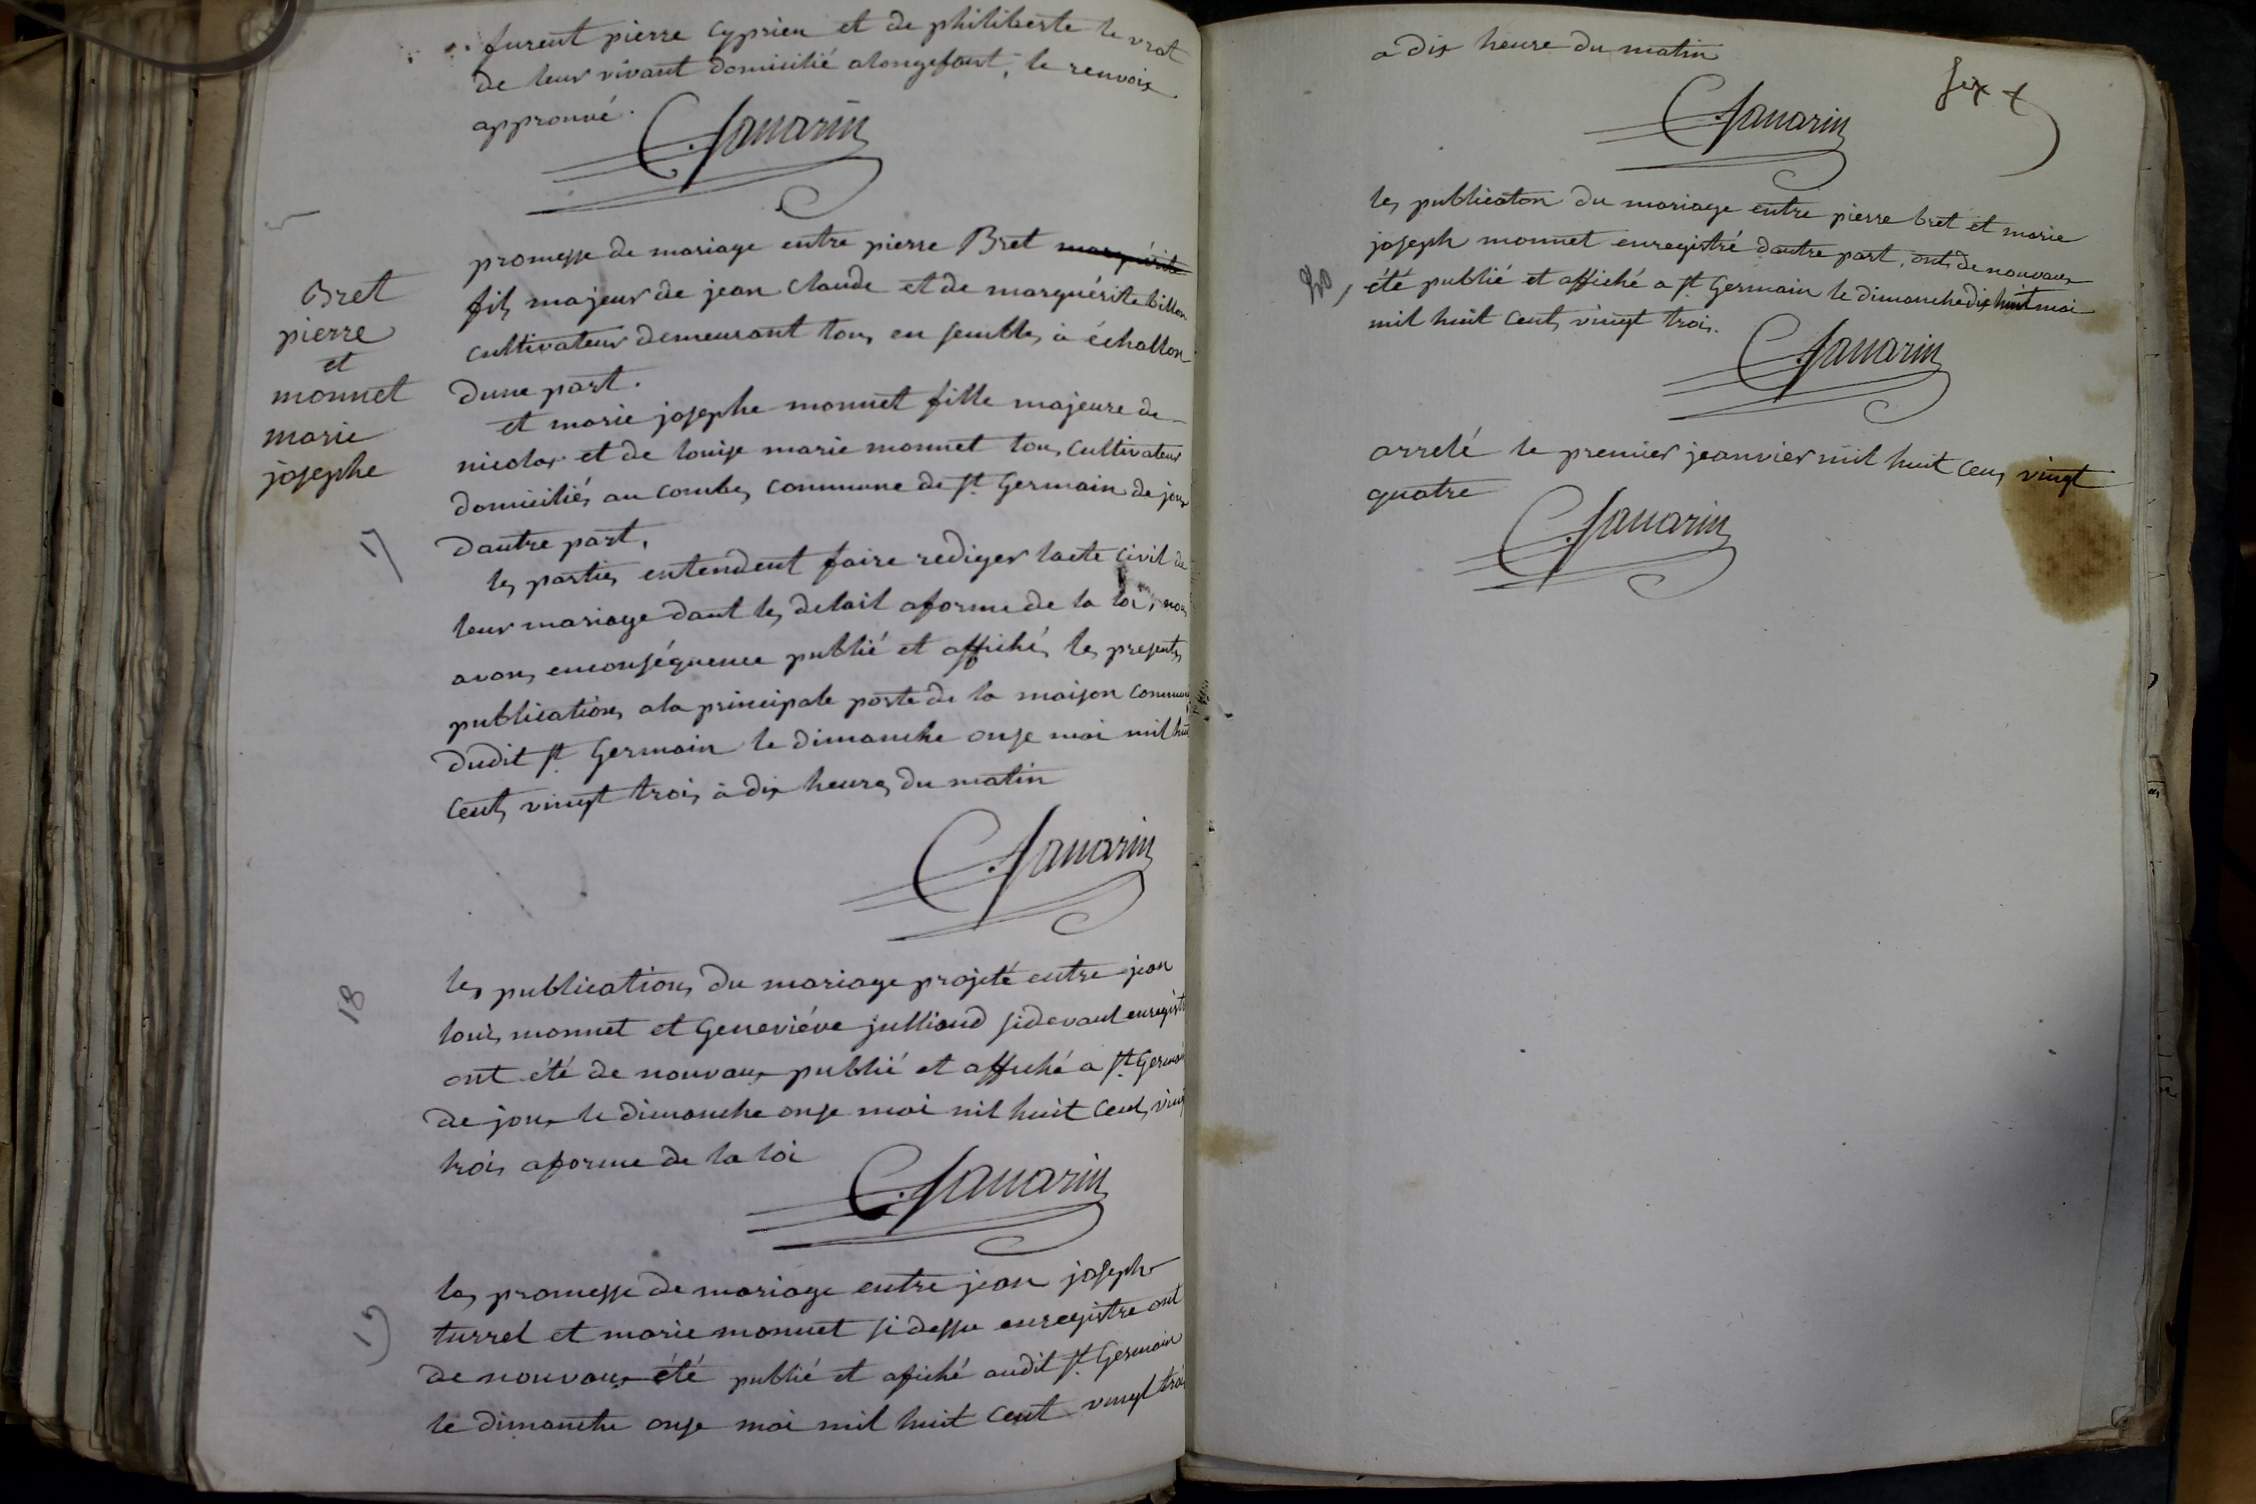 furent pierre Cyprien et de philiberte le vrat
de leur vivant domicilié alongefant, le renvoix
approuvé.
C. Savarin
Bret
pierre
et
monnet
marie
josephe
17
promesse de mariage entre pierre Bret marguérite
fils majeur de jean Claude et de marguérite billon
cultivateur demeurant tous en sembles à échallon
dune part.
et marie josephe monnet fille majeure de
nicolas et de louise marie monnet tous cultivateur
domiciliés au combes commune de St. Germain de joux
dautre part,
les parties entendent faire rediger lacte civil de
leur mariage dant les delait aforme de la loi, nous
avons enconséquence publié et affichés les presentes
publications ala principale porte de la maison commun
dudit St. Germain le dimanche onze mai mil huit
cents vingt trois à dix heures du matin
C. Savarin
18
les publications du mariage projeté entre jean
louis monnet et Geneviéve julliand sidevant enregistré
ont été de nouvaux publié et affiché a St. Germain
de joux le dimanche onze mai mil huit Cents vingt
trois aforme de la loi
C. Savarin
19
les promesse de mariage entre jean joseph
turrel et marie monnet sidessu enregistre ont
de nouvaux été publié et afiché audit St. Germain
le dimanche onze mai mil huit Cent vingt trois
a dix heure du matin
six
C. Savarin
20
les publicaton du mariage entre pierre bret et marie
joseph monnet enregistré dautre part, ont de nouvaux
été publié et affiché a St. Germain le dimanche dix huit mai
mil huit Cents vingt trois.
C. Savarin
arrelé le premier jeanvier mil huit Cens vingt
quatre
C. Savarin